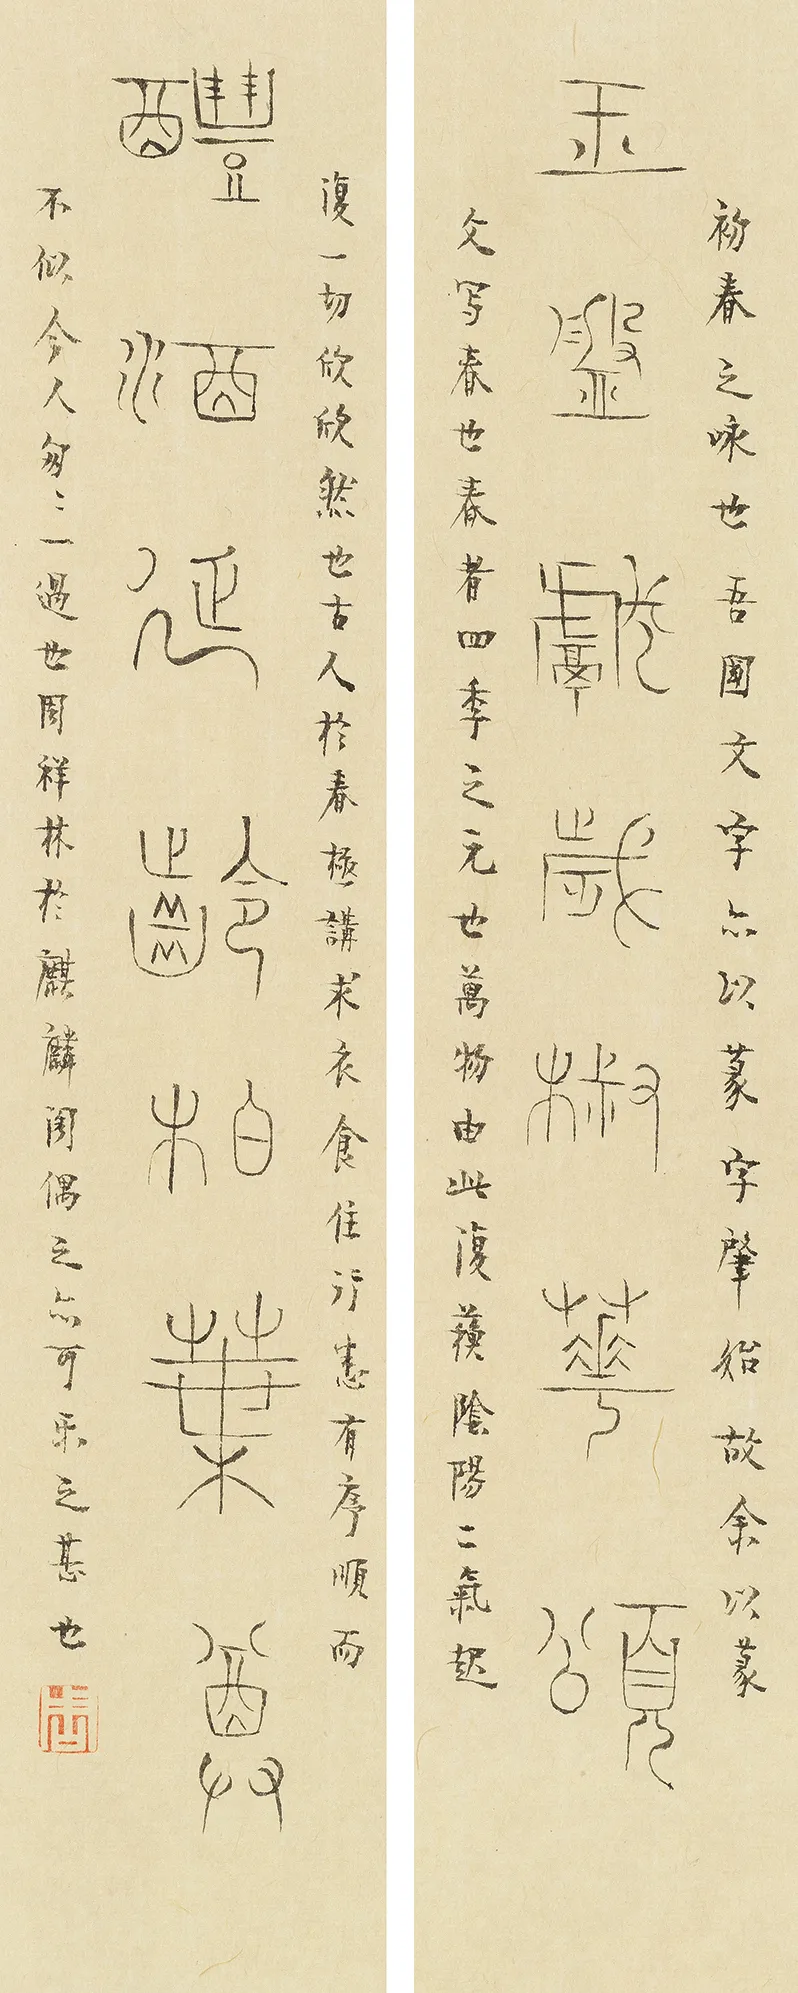 初春之咏也吾国文字亦以篆字肇始故余以篆
玉盘献岁椒华颂
文写春也春者四季之元也萬物由此復蘇陰陽二氣起
復一切欣欣然也古人於春極講求衣食住行悉有序順而
醴酒延齡柏葉尊
不似今人匆匆一過也周祥林於麒麟閣偶之亦可樂之甚也